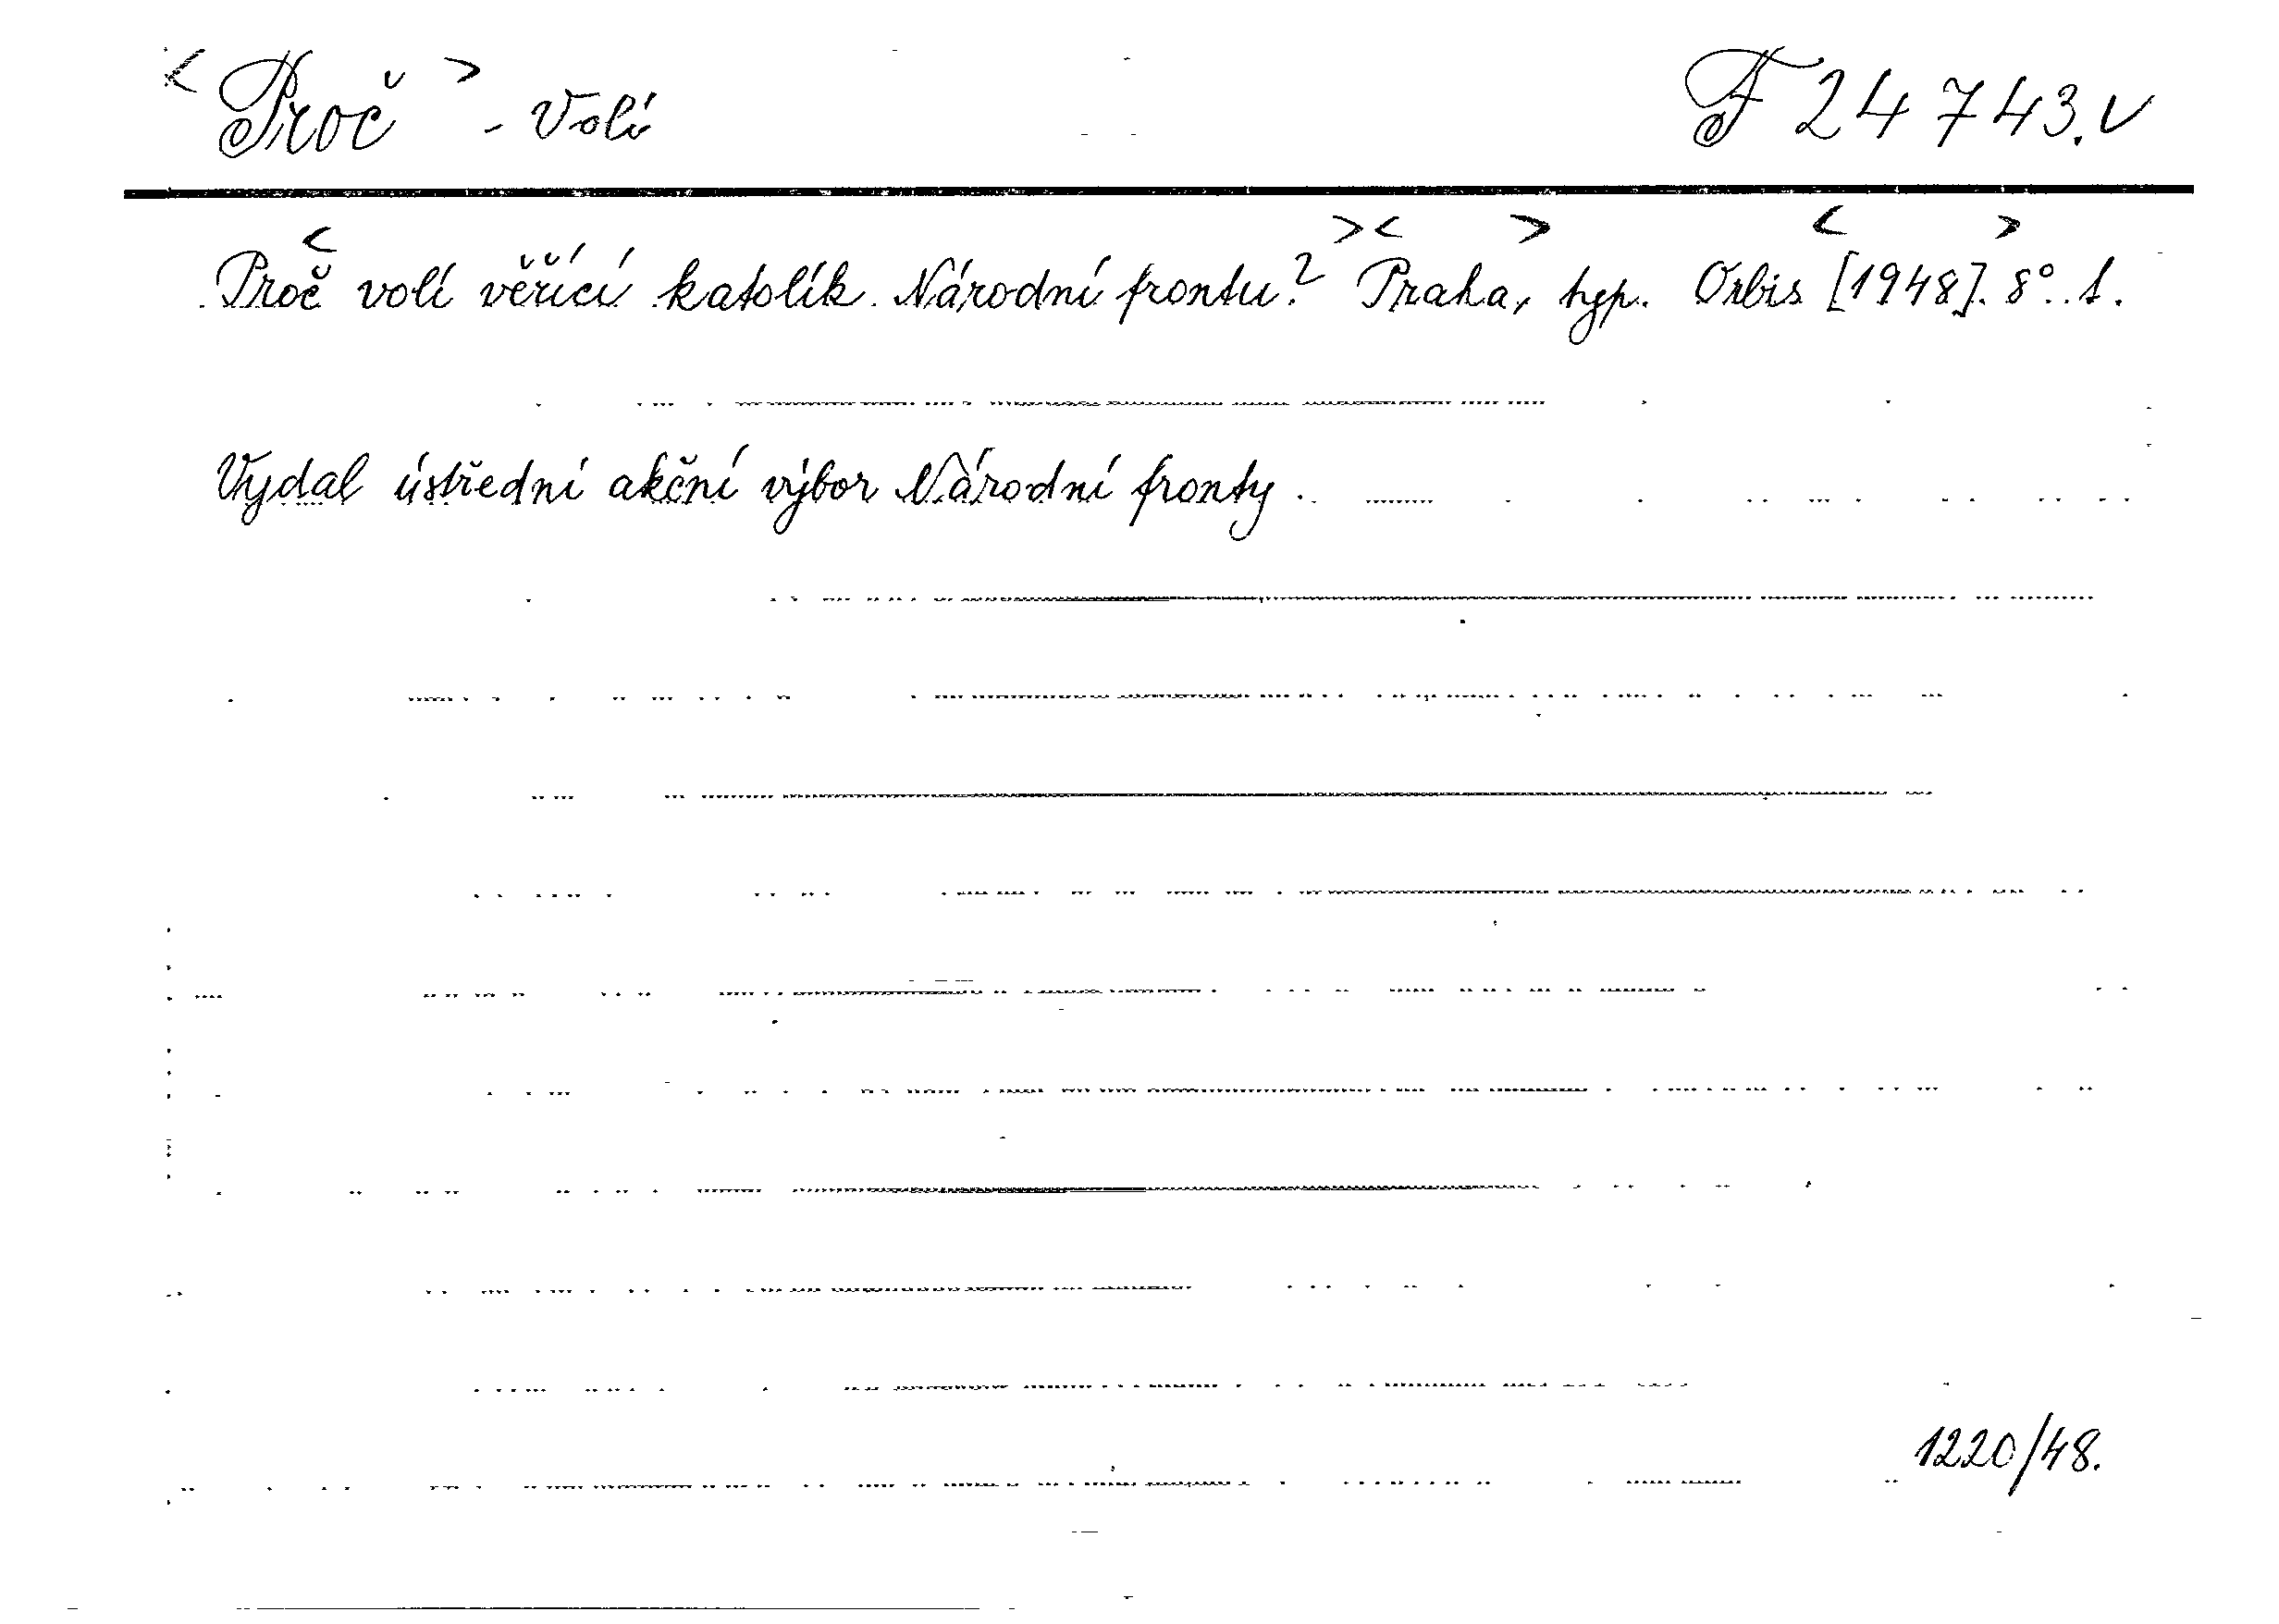 <Proč> - volí F 24743.v
<Proč volí věřící katolík Národní frontu?> <Praha,> typ. Orbis <[1948]. 8°> 1.
Vydal ústřední akční výbor Národní fronty.
1220/48.